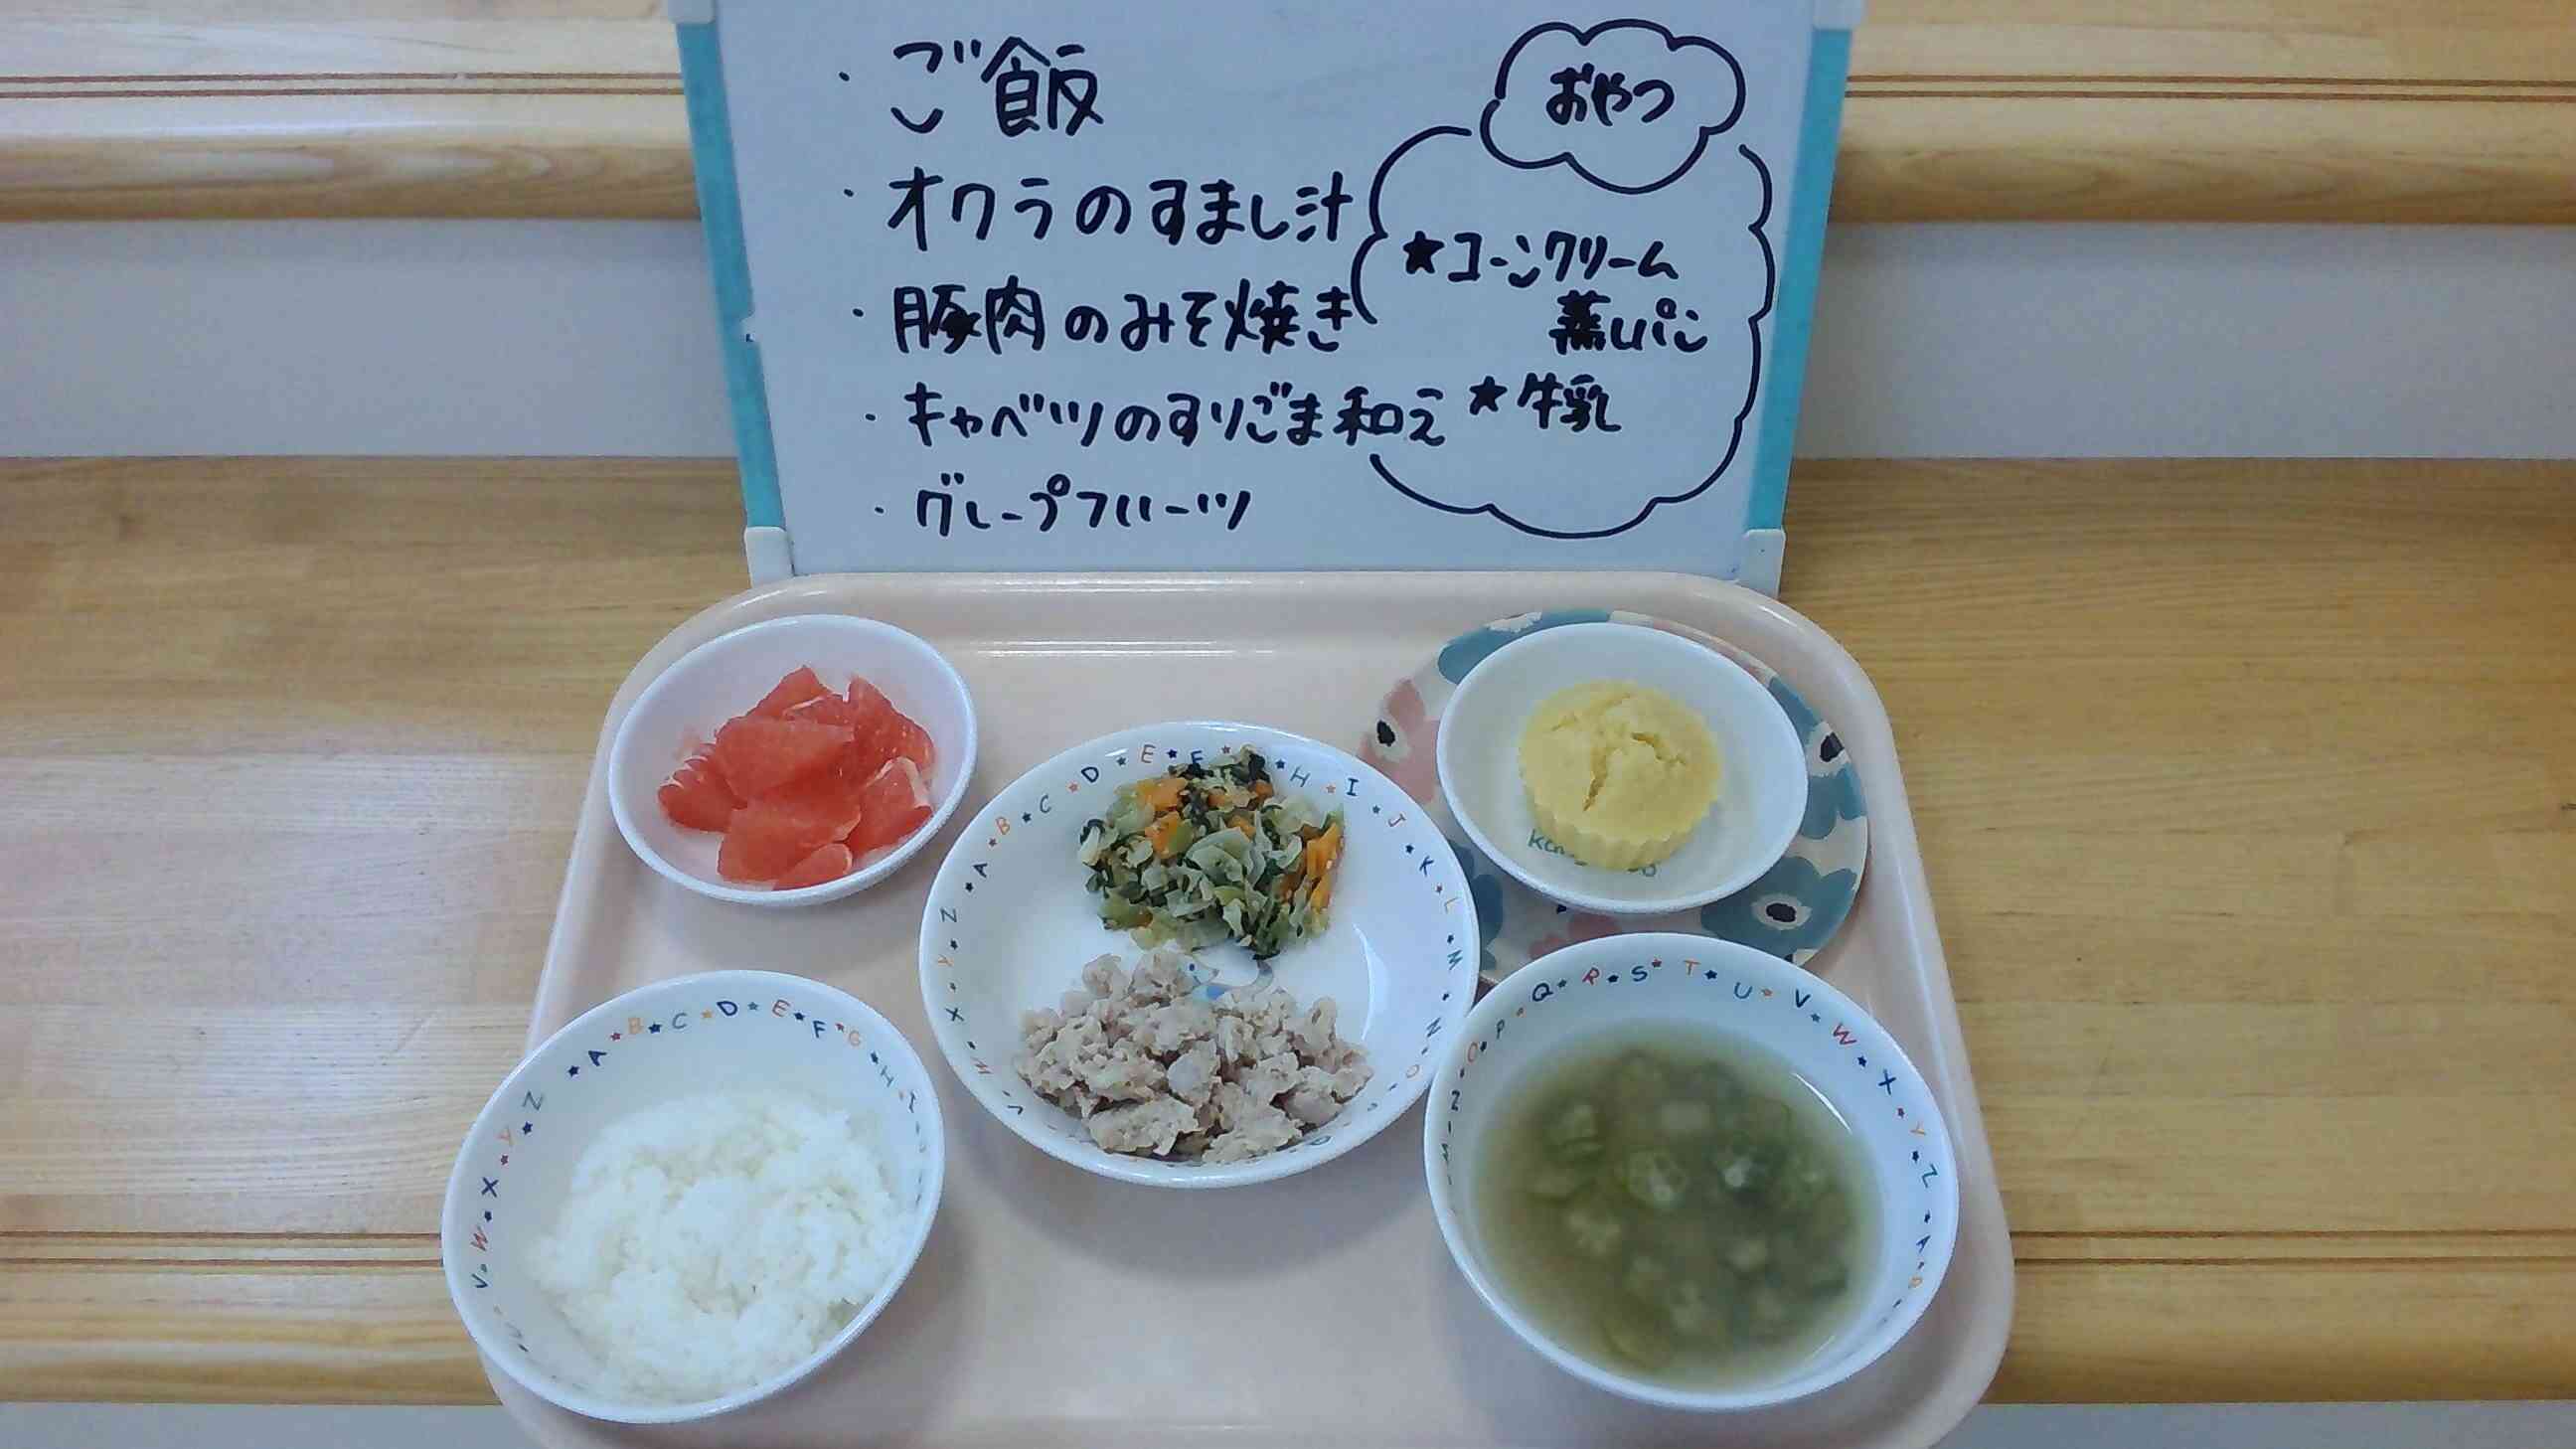 ・ご飯
・オクラのすまし汁
・豚肉のみそ焼き
・キャベツのすりごま和え
・グレープフルーツ
おやつ
★コーンクリーム
蒸しパン
★牛乳
A★B★C★D★E★F
H★I★J★K★L★M★N★O
V★W★X★Y★Z
A★B★C★D★E★F★G★H★I
V★W★X★Y★Z
M★N★O★P★Q★R★S★T★U★V★W★X★Y★Z★A★B